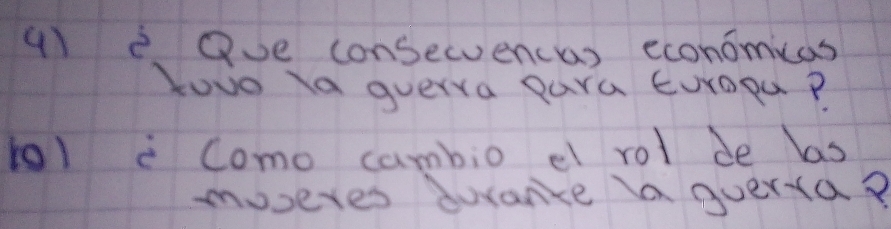 9) ¿ Que consecuencias económicas
tuvo la guerra para Europa?
10) ¿ Como cambio el rol de las
mujeres durante la guerra?